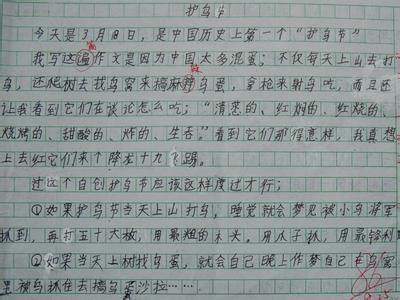 护鸟节
今天是3月18日，是中国历史上第一个“护鸟节”
我写这篇作文是因为中国太多混蛋；不仅每天上山去打
鸟，还爬树去找鸟窝来搞麻辣鸟蛋，拿枪来射鸟吃，而且还
让我看到它们在谈论怎么吃；“清蒸的、红焖的、红烧的、
烧烤的、甜酸的、炸的、生吞。”看到它们那得意样，我真想
上去红它们来个降龙十九飞踢。
过这个自创护鸟节应该这样度过才行；
①如果护鸟节当天上山打鸟，睡觉就会梦见被小鸟将军
抓到，再打五十大板，用最粗的木头。用爪子抓，用最锋利
②如果当天上树找鸟蛋，就会自己晚上作梦自己在鸟窝
里被鸟抓住去搞鸟蛋沙拉……